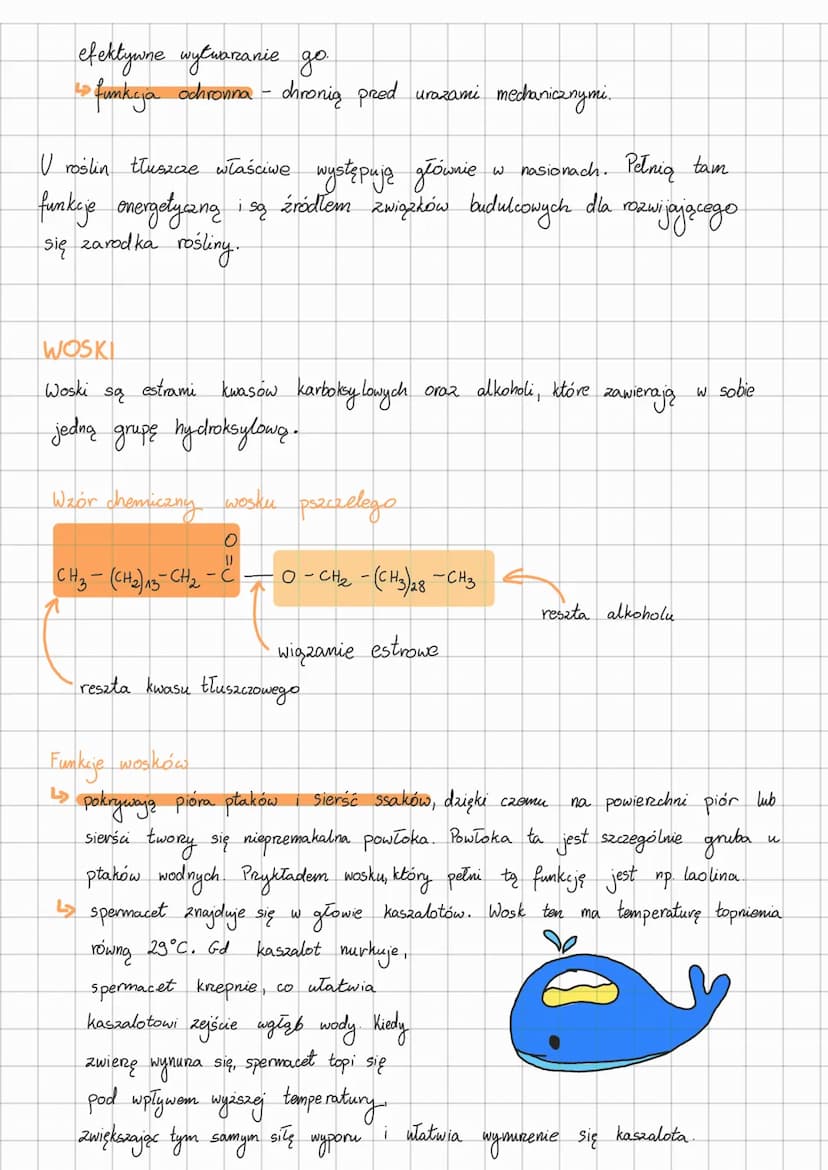 efektywne wytwarzanie go.
↳ funkcja ochronna - chronią przed urazami mechanicznymi.
U roślin tłuszcze właściwe występują głównie w nasionach. Pełnią tam
funkcje energetyczną i są źródłem związków budulcowych dla rozwijającego
się zarodka rośliny.
WOSKI
Woski są estrami kwasów karboksylowych oraz alkoholi, które zawierają w sobie
jedną grupę hydroksylową.
Wzór chemiczny wosku pszczelego
O
CH₃ - (CH₂)₁₃ - CH₂ - C — O - CH₂ - (CH₃)₂₈ - CH₃
reszta alkoholu
wiązanie estrowe
reszta kwasu tłuszczowego
Funkcje wosków
↳ pokrywają pióra ptaków i sierść ssaków, dzięki czemu na powierzchni piór lub
sierści tworzy się nieprzemakalna powłoka. Powłoka ta jest szczególnie gruba u
ptaków wodnych. Przykładem wosku, który pełni tą funkcję jest np. laolina.
↳ spermacet znajduje się w głowie kaszalotów. Wosk ten ma temperaturę topnienia
równą 29°C. Gd kaszalot nurkuje,
spermacet krzepnie, co ułatwia
kaszalotowi zejście wgłąb wody. Kiedy
zwierzę wynurza się, spermacet topi się
pod wpływem wyższej temperatury,
zwiększając tym samym siłę wyporu i ułatwia wynurzenie się kaszalota.